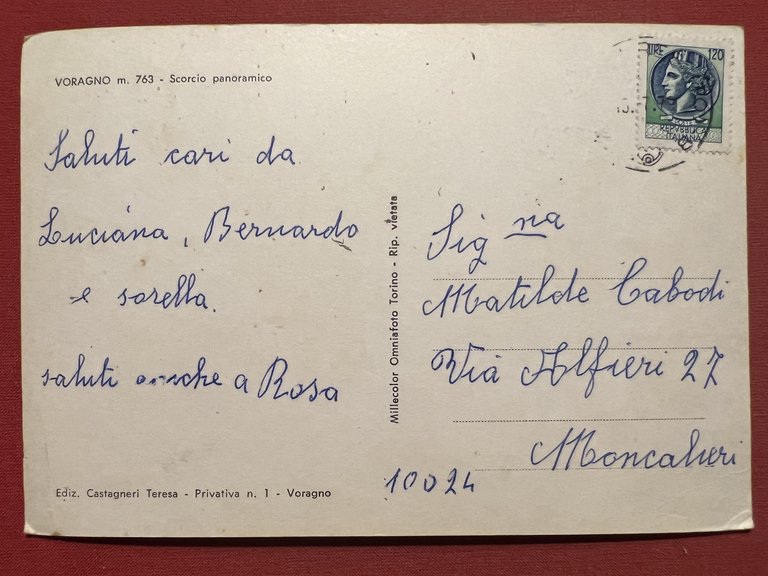 VORAGNO m. 763 - Scorcio panoramico
Saluti cari da
Luciana, Bernardo
e sorella.
saluti anche a Rosa
Ediz. Castagneri Teresa - Privativa n. 1 - Voragno
Millecolor Omniafoto Torino - Rip. vietata
LIRE 120
POSTE
REPVBBLICA
ITALIANA
Sig na
Matilde Cabodi
Via Alfieri 27
Moncalieri
10024